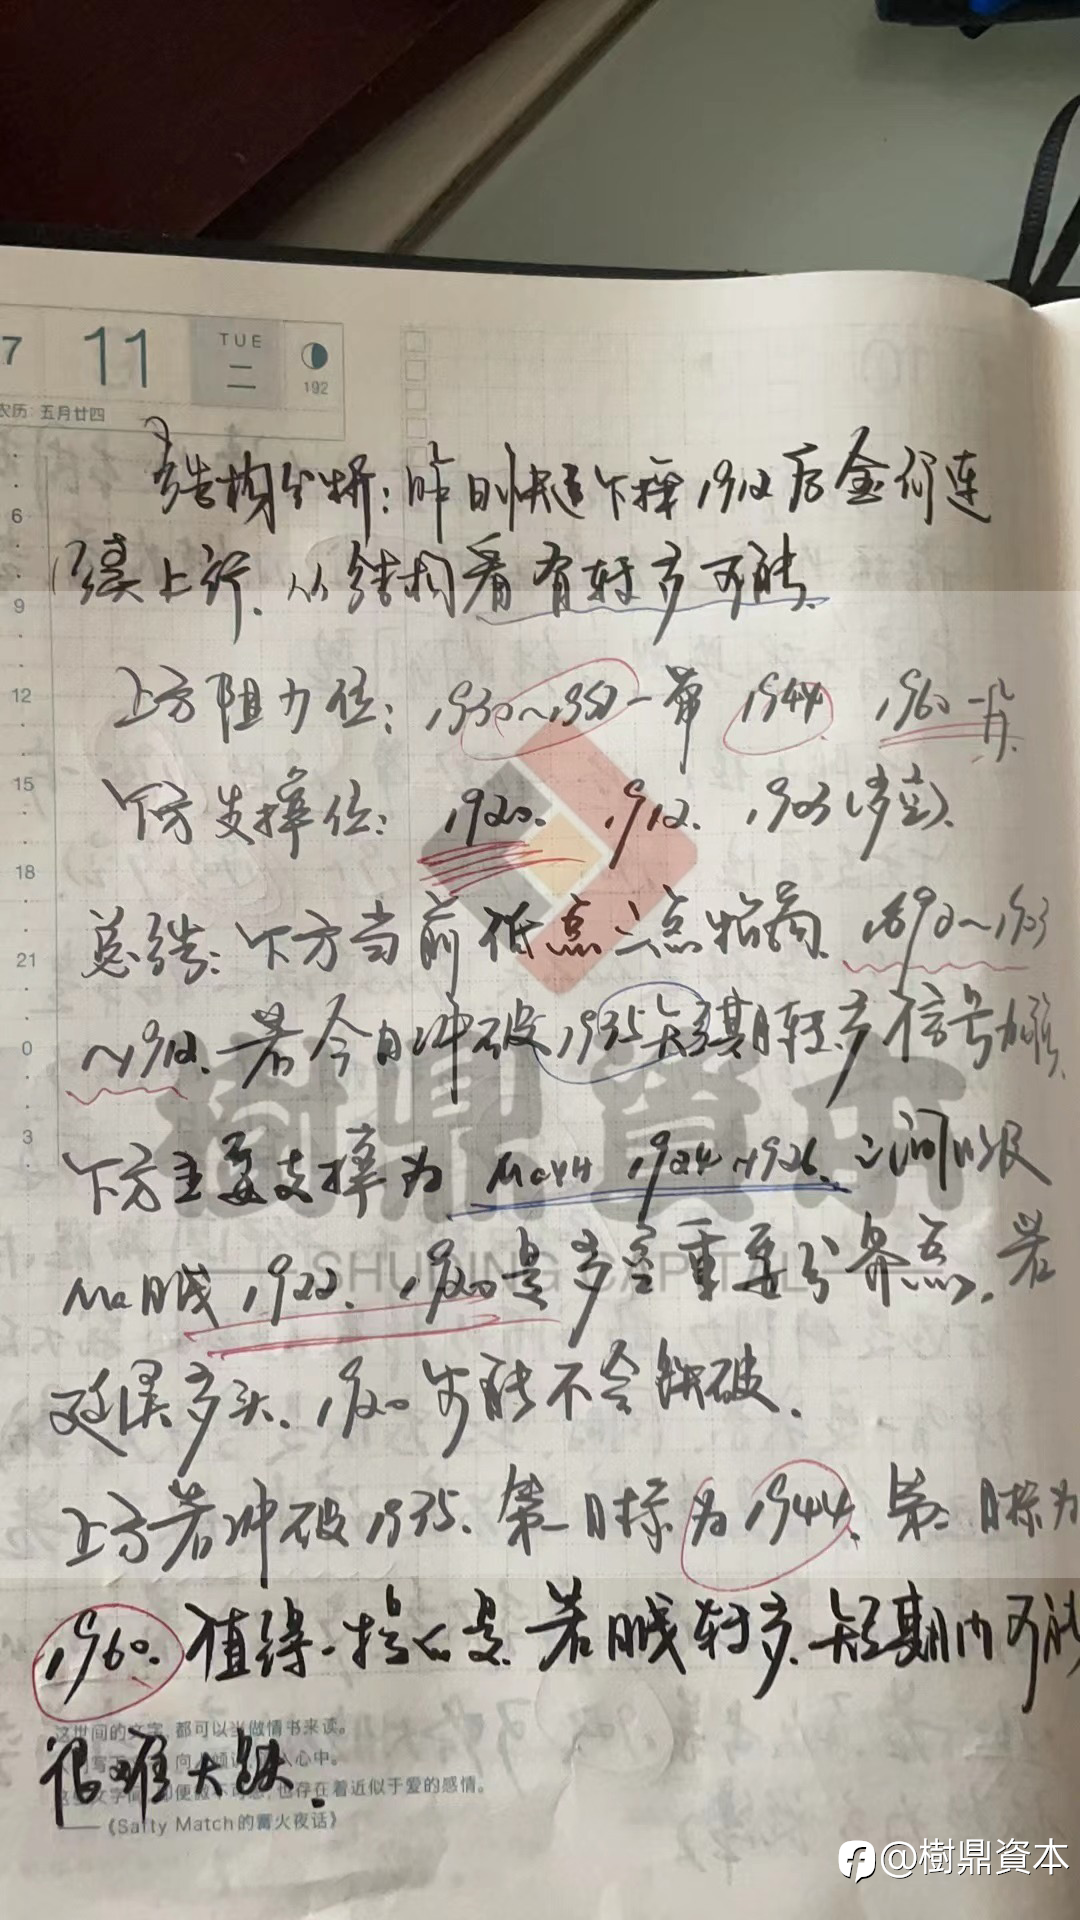 7 11 TUE 二 192
农历: 五月廿四
结构分析: 昨日快速下探1912后金价连
续上行. 从结构看有转多可能.
上方阻力位: 1930~1935一带 1944 1960一片.
下方支撑位: 1920. 1912. 1903(多空).
总结: 下方当前低点三点抬高. 1893~1903
~1912. 若今日冲破1935短期转多信号加强.
下方主要支撑为 Ma4H 1924~1926. 之间以及
Ma日线 1922. 1920是多空重要分界点. 若
延续多头. 1920可能不会跌破.
上方若冲破1935. 第一目标为1944. 第二目标为
1960. 值得一提的是. 若日线转多. 短期内可能
很难大跌.
6
9
12
15
18
21
0
3
樹鼎資本
SHUDING CAPITAL
这世间的文字, 都可以当做情书来读。
心中。
也存在着近似于爱的感情。
——《Salty Match的篝火夜话》
@樹鼎資本